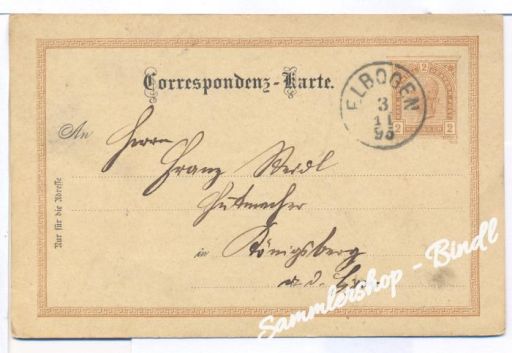 Correspondenz-Karte.
2
ELBOGEN
3
11
2 2
An
Herrn
Franz Weidl
Hutmacher
in Königsberg
a. d. Eger
Nur für die Adresse
Sammlershop - Bindl